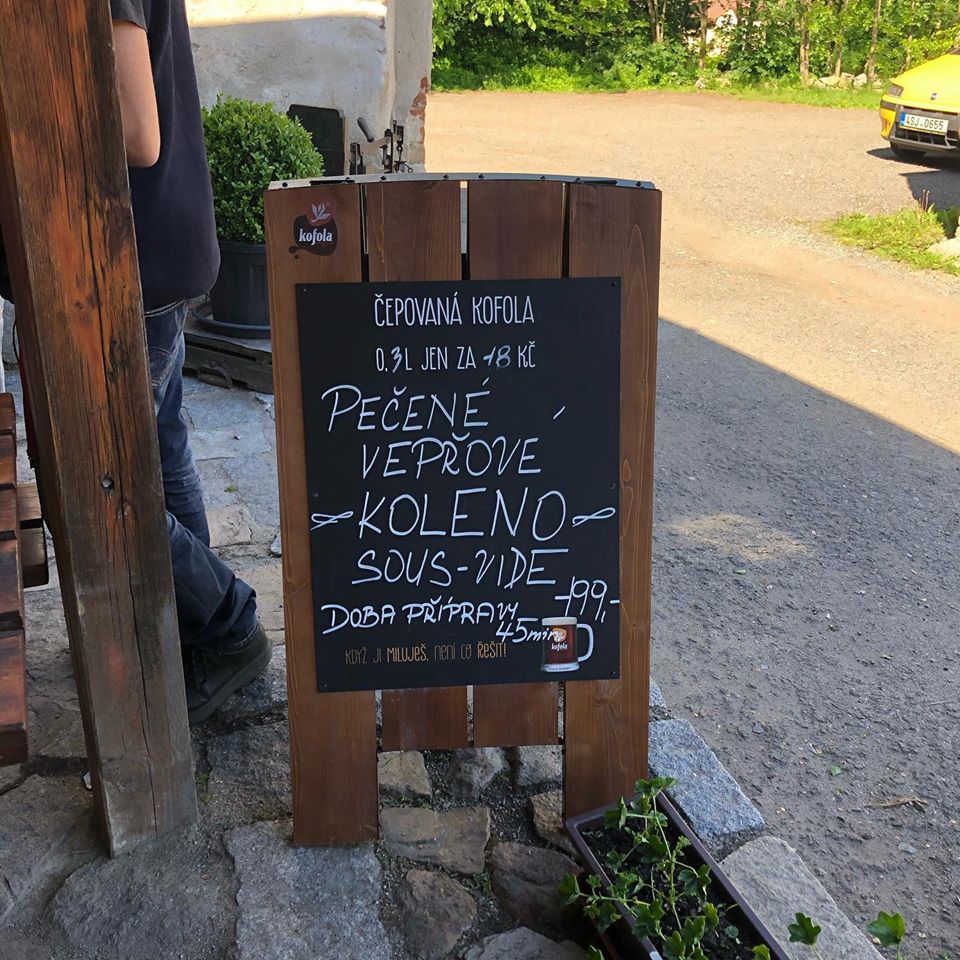 4SJ 0655
kofola
ČEPOVANÁ KOFOLA
0,3L JEN ZA 18 KČ
PEČENÉ
VEPŘOVÉ
KOLENO
SOUS-VIDE
-199,-
DOBA PŘÍPRAVY
45min
kofola
KDYŽ JI MILUJEŠ, NENÍ CO ŘEŠIT!